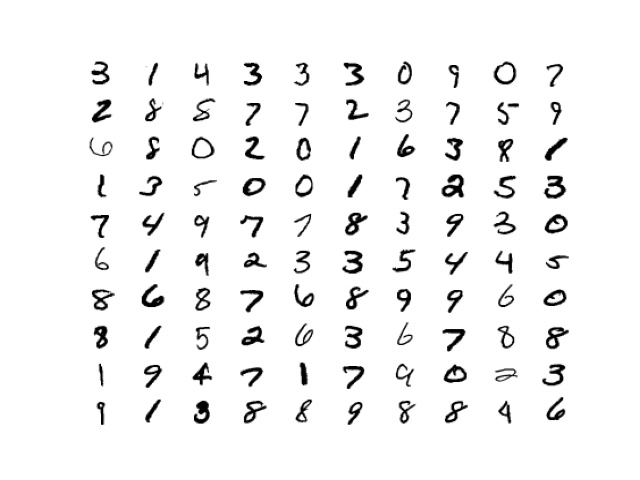 3 1 4 3 3 3 0 9 0 7
2 8 8 7 7 2 3 7 5 9
6 8 0 2 0 1 6 3 8 1
1 3 5 0 0 1 7 2 5 3
7 4 9 7 7 8 3 9 3 0
6 1 9 2 3 3 5 4 4 5
8 6 8 7 6 8 9 9 6 0
8 1 5 2 6 3 6 7 8 8
1 9 4 7 1 7 9 0 2 3
9 1 3 8 8 9 8 8 4 6